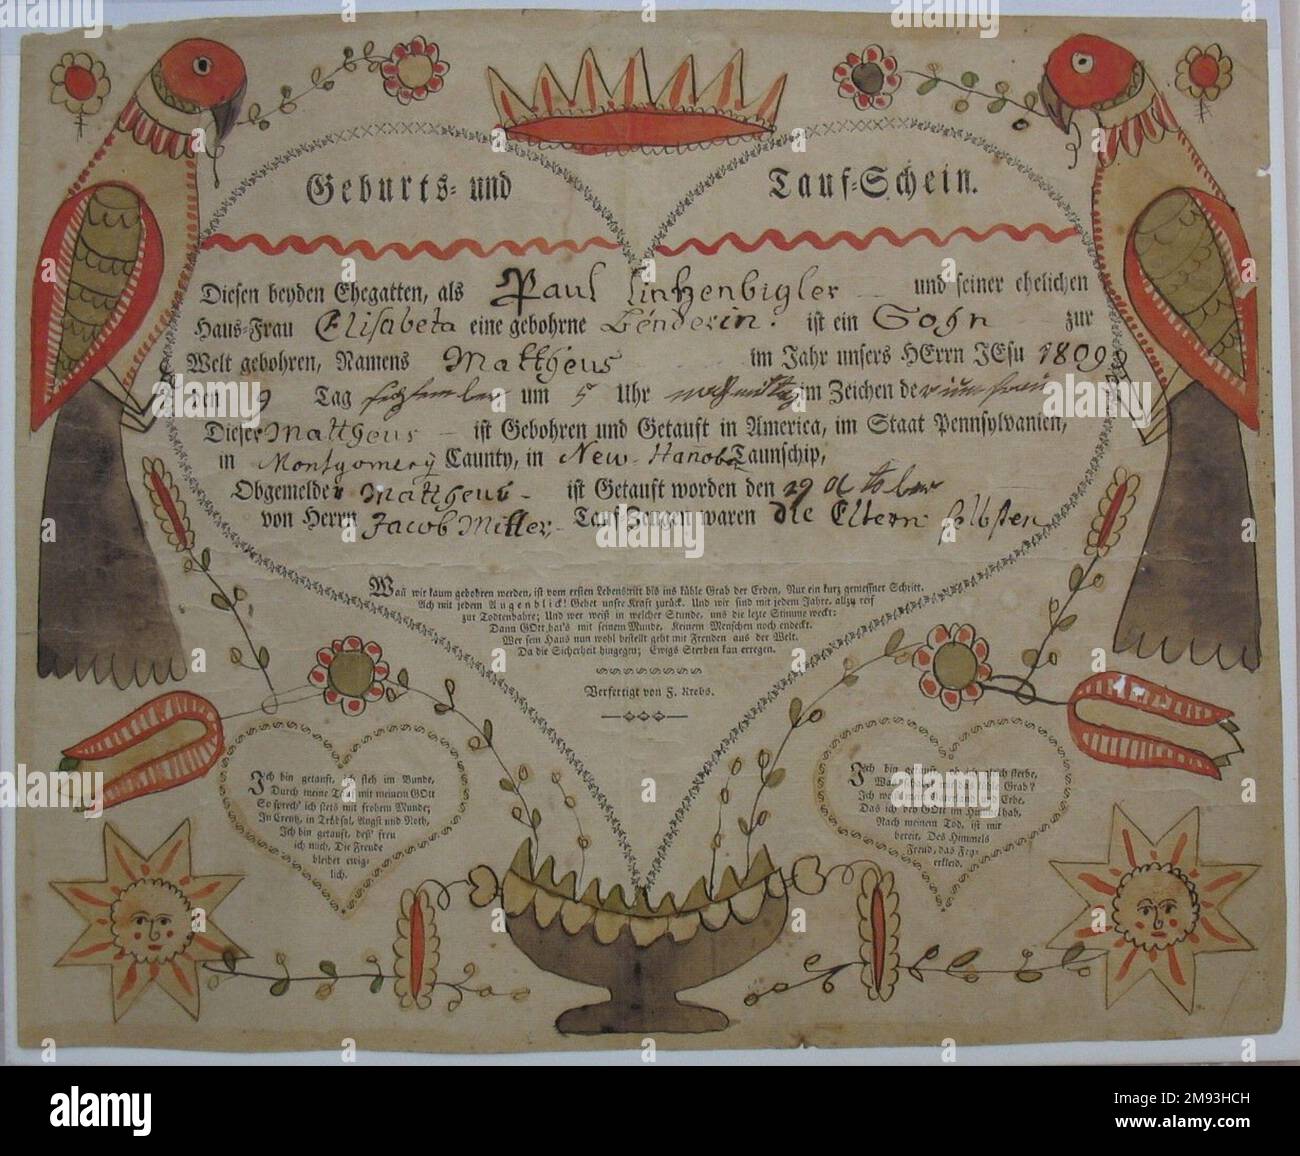 Geburts- und Tauf-Schein.
Diesen beyden Ehegatten, als Paul Lintzenbigler und seiner ehelichen
Haus-Frau Elisabeta eine gebohrne Bénderin. ist ein Sohn zur
Welt gebohren, Namens Mattheus im Jahr unsers HErrn JEsu 1809
den 9 Tag September um 5 Uhr nachmittag im Zeichen der Jungfrau
Dieser Mattheus ist Gebohren und Getauft in America, im Staat Pennsylvanien,
in Montgomery Caunty, in New-Hanober Taunschip,
Obgemelder Mattheus ist Getauft worden den 29 october
von Herrn Jacob Miller Tauf Zeugen waren die Eltern selbsten
Wañ wir kaum gebohren werden, ist vom ersten Lebenstritt bis ins kühle Grab der Erden, Nur ein kurz gemessner Schritt.
Ach mit jedem Augenblick! Gehet unsre Kraft zurück. Und wir sind mit jedem Jahre, allzu reif
zur Todtenbahre; Und wer weiß in welcher Stunde, uns die lezte Stimme weckt:
Dann GOtt hat's mit seinem Munde, Keinem Menschen noch endeckt.
Wer sein Haus nun wohl bestellt geht mit Freuden aus der Welt.
Da die Sicherheit hingegen; Ewigs Sterben kan erregen.
Verfertigt von F. Krebs.
Ich bin getauft, ich steh im Bunde,
Durch meine Tauf mit meinem GOtt
So sprech' ich stets mit frohem Munde;
In Creutz, in Trübsal, Angst und Noth,
Ich bin getauft, deß' freu
ich mich, Die Freude
bleibet ewig-
lich.
Ich bin getauft, ob ich gleich sterbe,
Was schadet mir das kühle Grab?
Ich weis mein Vaterland und Erbe,
Das ich bey GOtt im Himmel hab,
Nach meinem Tod, ist mir
bereit, Des Himmels
Freud, das Feyr-
erkleid.
alamy
Image ID: 2M93HCH
www.alamy.com